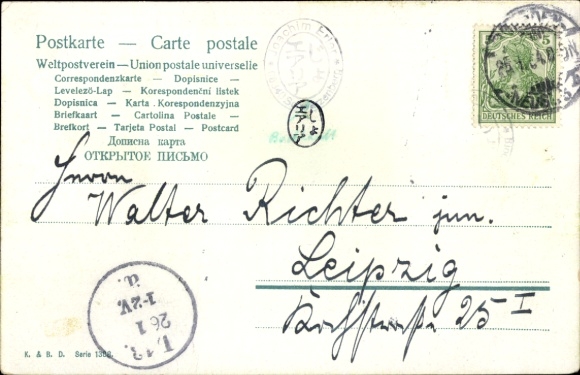 Postkarte — Carte postale
Weltpostverein — Union postale universelle
Correspondenzkarte — Dopisnice —
Levelező-Lap — Korespondenční listek
Dopisnica — Karta Korespondenzyjna
Briefkaart — Cartolina Postale —
Brefkort — Tarjeta Postal — Postcard
Дописна карта
ОТКРЫТОЕ ПИСЬМО
Joachim
5
DEUTSCHES REICH
Herrn
Walter Richter jun.
Leipzig
Kochstraße 25 I
L. 13.
26 1
1-2 V.
K. & B. D. Serie